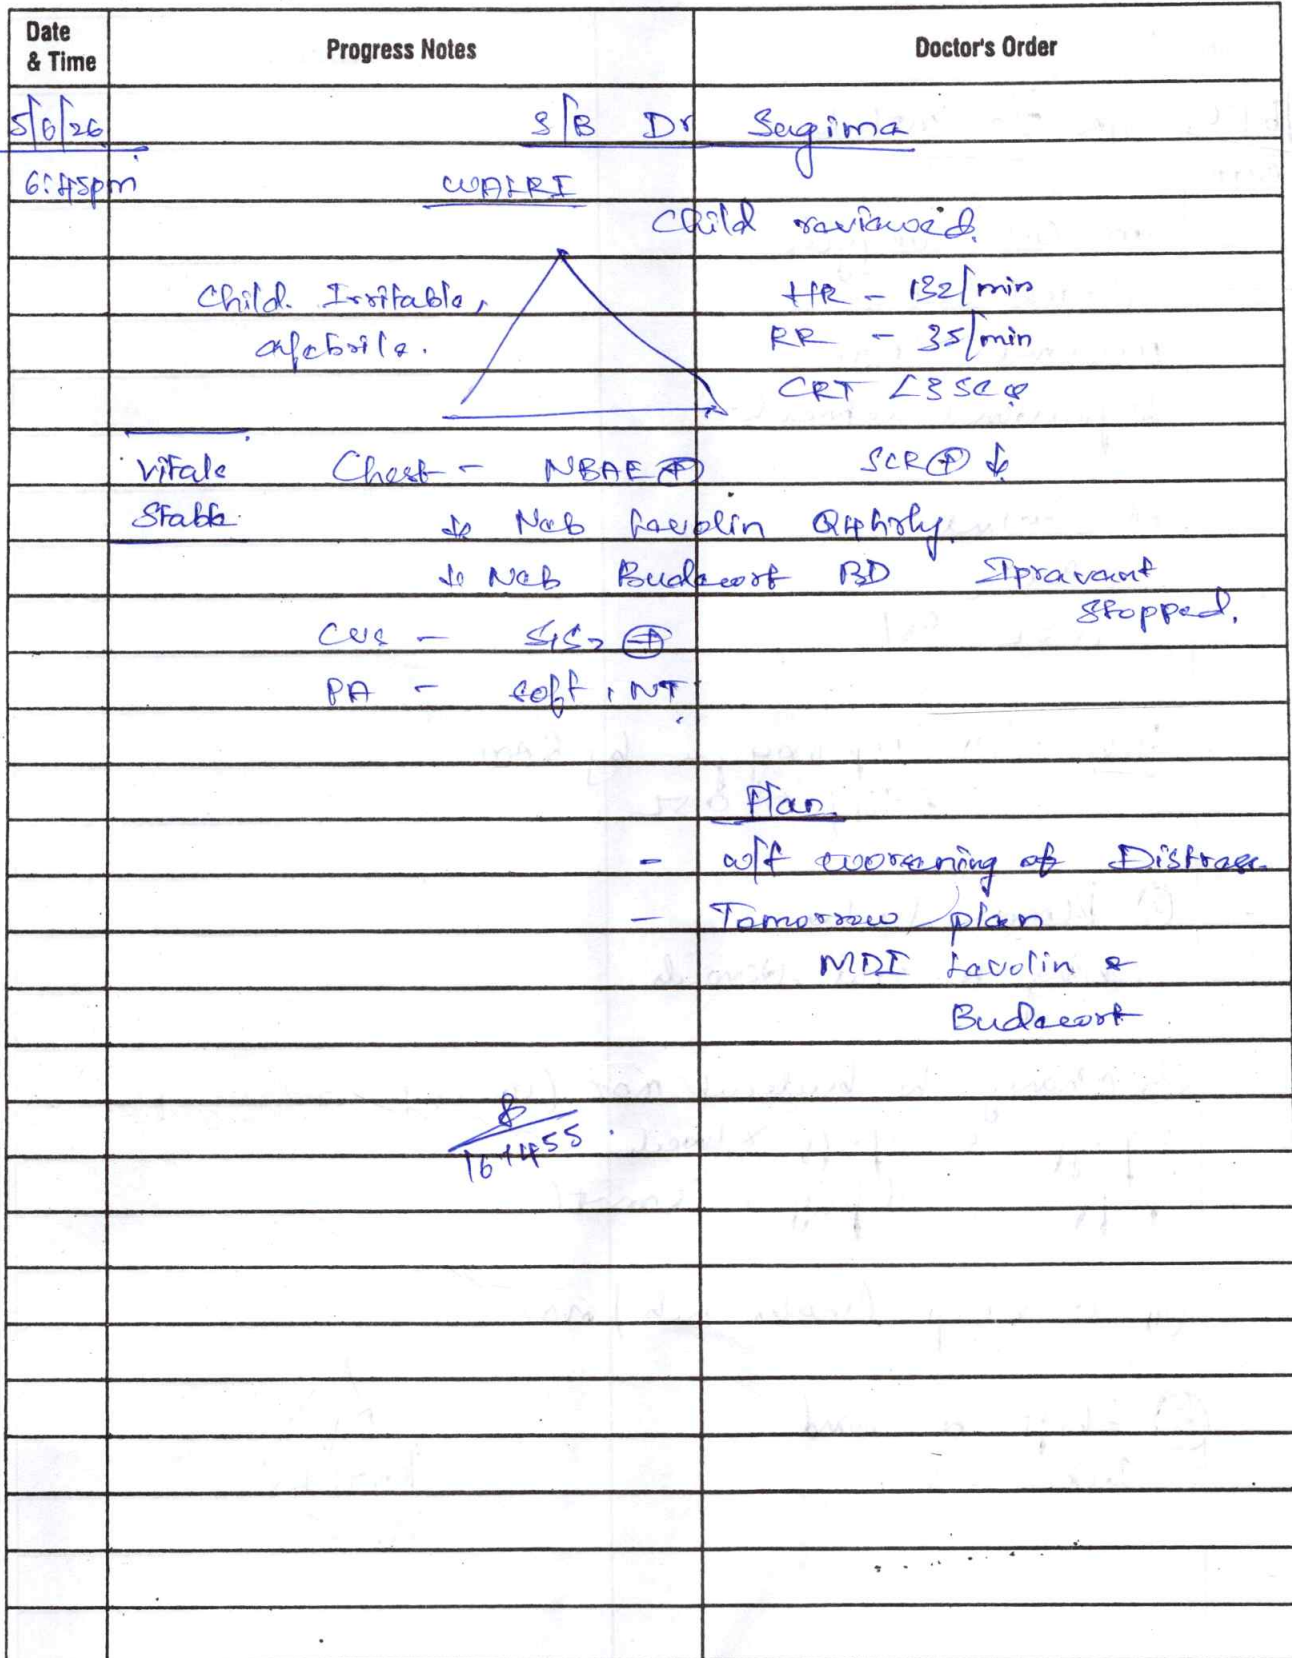 Date & Time
Progress Notes
Doctor's Order
5/6/26
S/B Dr Sagima
6:45pm
WALRI
Child reviewed.
Child Irritable,
afebrile.
HR - 132/min
RR - 35/min
CRT <3 sec
Vitals Stable
Chest - NBAE ⊕ SCR ⊕ ↓
↓ Neb Levolin Q4hrly.
↓ Neb Budecort BD Ipravent stopped.
CVS - S1S2 ⊕
PA - soft, NT
Plan
- w/f worsening of Distress
- Tomorrow plan
MDI Levolin &
Budecort